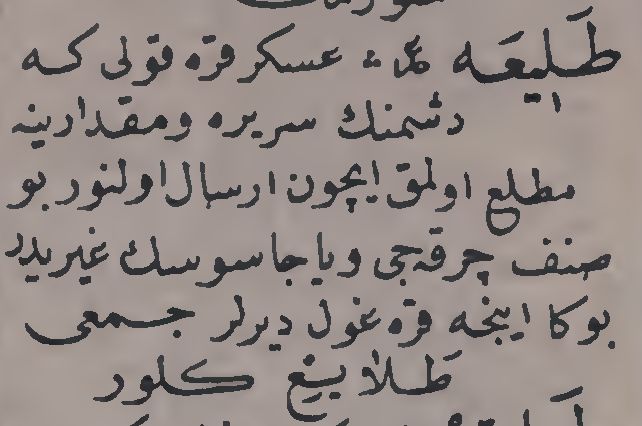 طَلِيعَه عسكر قره قولى كه
دشمنك سريره ومقدارينه
مطلع اولمق ايچون ارسال اولنور بو
صنف چرقه جى ويا جاسوسك غيريدر
بوكا اينجه قره غول ديرلر جمعى
طَلايِع كلور